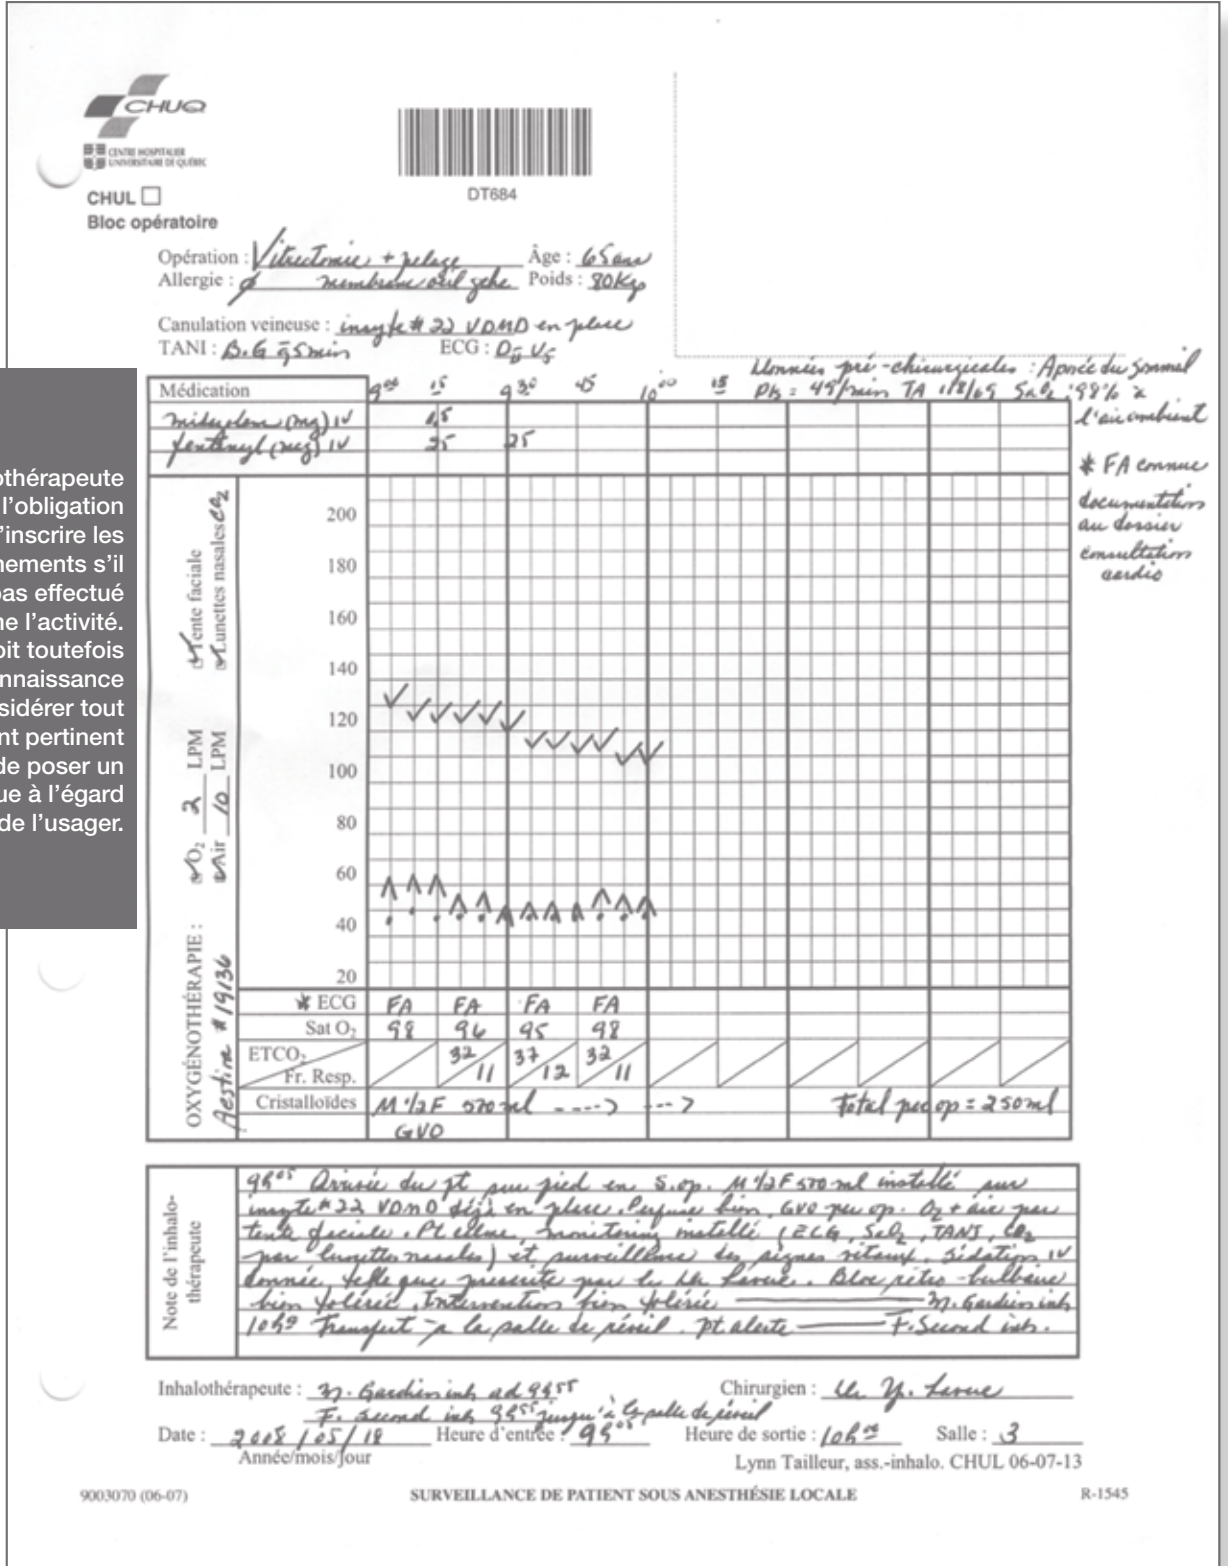 CHUQ
CENTRE HOSPITALIER
UNIVERSITAIRE DE QUÉBEC
CHUL
Bloc opératoire
DT684
Opération : Vitrectomie + pelage Âge : 65 ans
Allergie : ø membrane œil gche Poids : 80 Kg
Canulation veineuse : insyte # 22 VDMD en place
TANI : B.G q̄ 5 min ECG : DII V5
Données pré-chirurgicales : Apnée du sommeil
Pls = 49/min TA 118/69 SaO2 : 98% à
l'air ambient
* FA connue
documentation
au dossier
consultation
cardio
Médication 9 00 15 9 30 45 10 00 15
midazolam (mg) IV 1,5
fentanyl (mcg) IV 25 25
othérapeute
l'obligation
'inscrire les
nements s'il
pas effectué
ne l'activité.
oit toutefois
nnaissance
sidérer tout
nt pertinent
de poser un
ue à l'égard
de l'usager.
OXYGÉNOTHÉRAPIE : O2 2 LPM Tente faciale
Aestiva # 19136 Air 10 LPM Lunettes nasales CO2
200
180
160
140
120
100
80
60
40
20
* ECG FA FA FA FA
Sat O2 98 96 95 98
ETCO2 32 37 32
Fr. Resp. 11 12 11
Cristalloïdes M 1/2 F 570 ml ----> ---> Total per op = 250 ml
GVO
Note de l'inhalo-
thérapeute
9h05 Arrivée du pt sur pied en S.op. M 1/2 F 570 ml installé sur
insyte # 22 VDMD déjà en place. Perfuse bien, GVO per op. O2 + air par
tente faciale. Pt calme, monitoring installé (ECG, SaO2, TANI, CO2
par lunettes nasales) et surveillance des signes vitaux. Sédation IV
donnée, telle que prescrite par le Dr Lavoie. Bloc rétro-bulbaire
bien toléré. Intervention bien tolérée M. Gardien inh
Transfert à la salle de réveil. Pt alerte F. Second inh.
Inhalothérapeute : M. Gardien inh ad 9h55 Chirurgien : Dr Y. Lavoie
F. Second inh 9h55 jusqu'à la salle de réveil
Date : 2008/05/18 Heure d'entrée : 9h05 Heure de sortie : Salle : 3
Année/mois/jour
Lynn Tailleur, ass.-inhalo. CHUL 06-07-13
9003070 (06-07) SURVEILLANCE DE PATIENT SOUS ANESTHÉSIE LOCALE R-1545